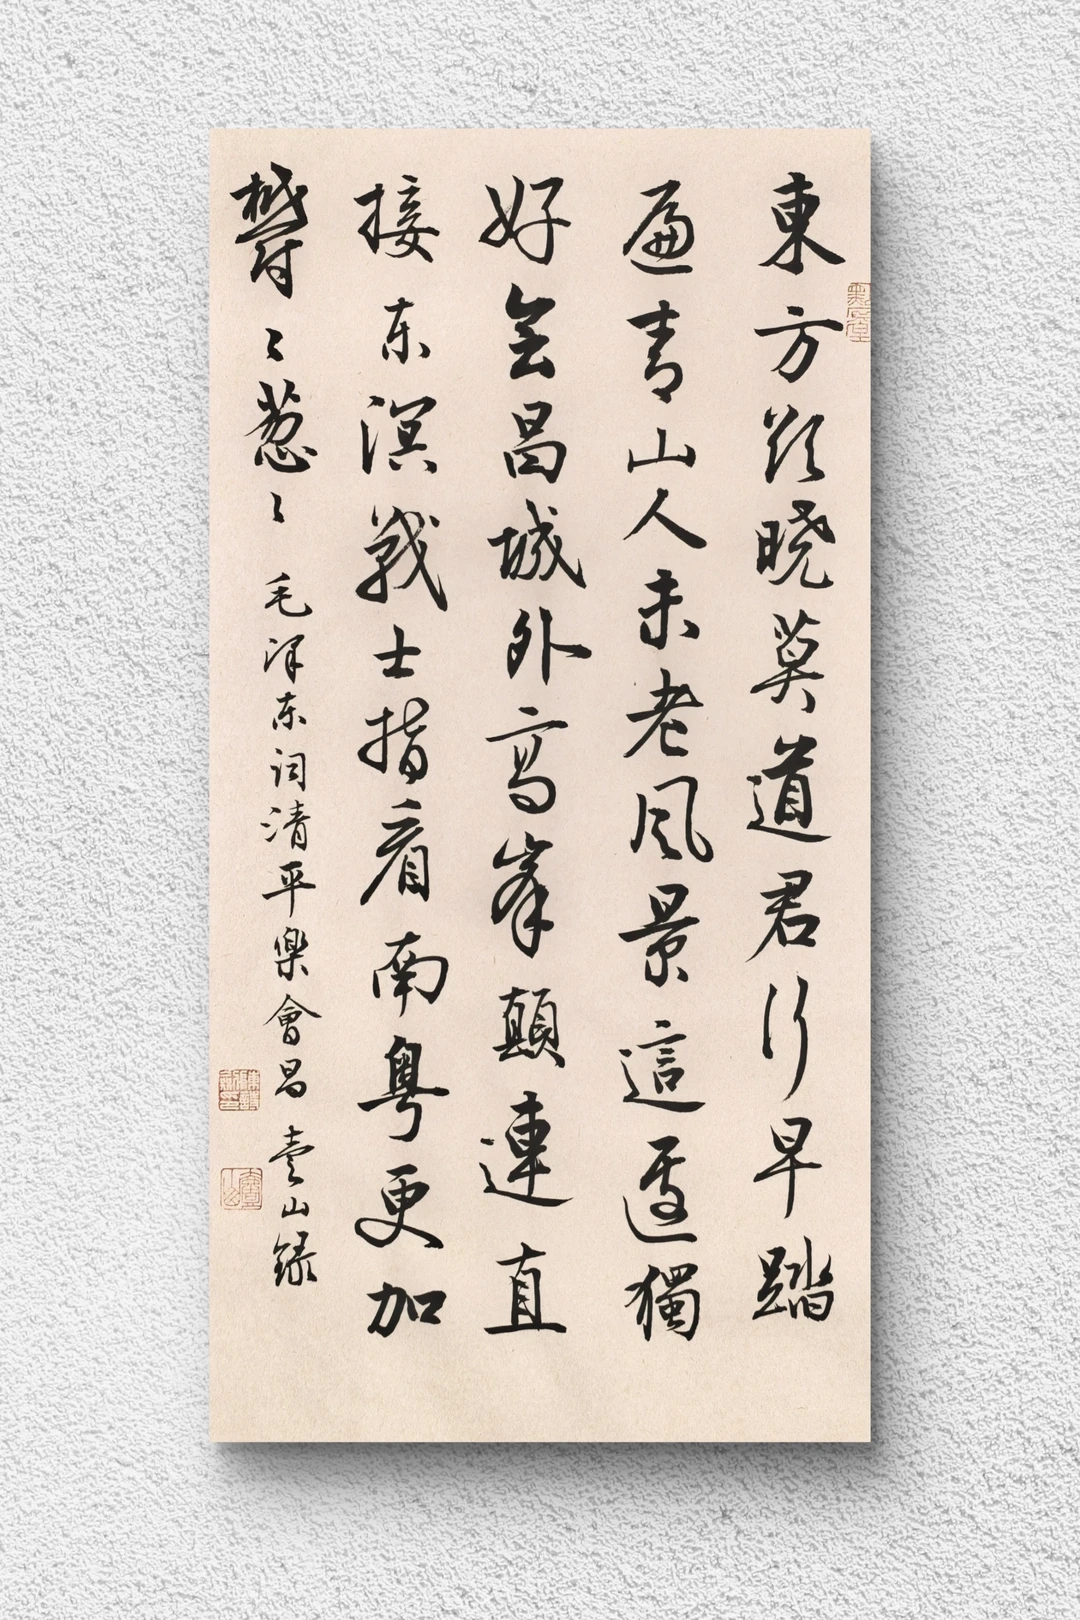 東方欲晓莫道君行早踏
遍青山人未老风景這邊獨
好会昌城外高峯顛連直
接东溟戰士指看南粤更加
鬱々葱々 毛泽东词清平樂會昌 山録